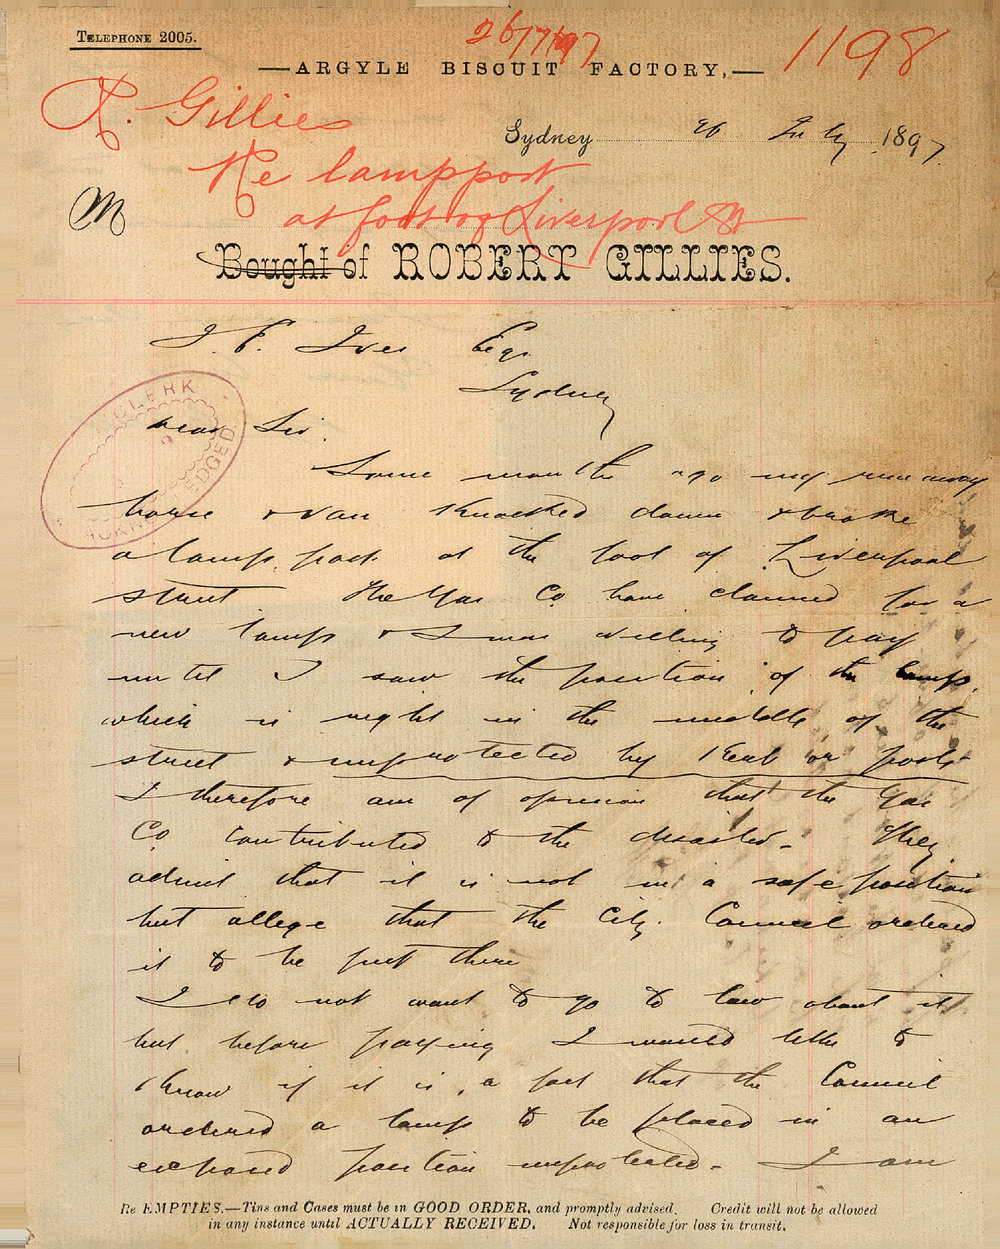 TELEPHONE 2005.
26/7/97
1198
—ARGYLE BISCUIT FACTORY,—
R. Gillies
Sydney 26 July 1897
Re lamppost
M
at foot of Liverpool St
Bought of ROBERT GILLIES.
J. P. Ives Esqr
Sydney
CLERK
Dear Sir.
Some months ago my runaway
horse & van knocked down & broke
a lamp post at the foot of Liverpool
street The Gas Co have claimed for a
new lamp & I was willing to pay
until I saw the position of the lamp
which is right in the middle of the
street & unprotected by kerb or posts
I therefore am of opinion that the Gas
Co contributed to the disaster - They
admit that it is not in a safe position
but allege that the City Council ordered
it to be put there
I do not want to go to law about it
but before paying I would like to
know if it is a fact that the Council
ordered a lamp to be placed in an
exposed position unprotected - I am
Re EMPTIES.—Tins and Cases must be in GOOD ORDER, and promptly advised. Credit will not be allowed
in any instance until ACTUALLY RECEIVED. Not responsible for loss in transit.